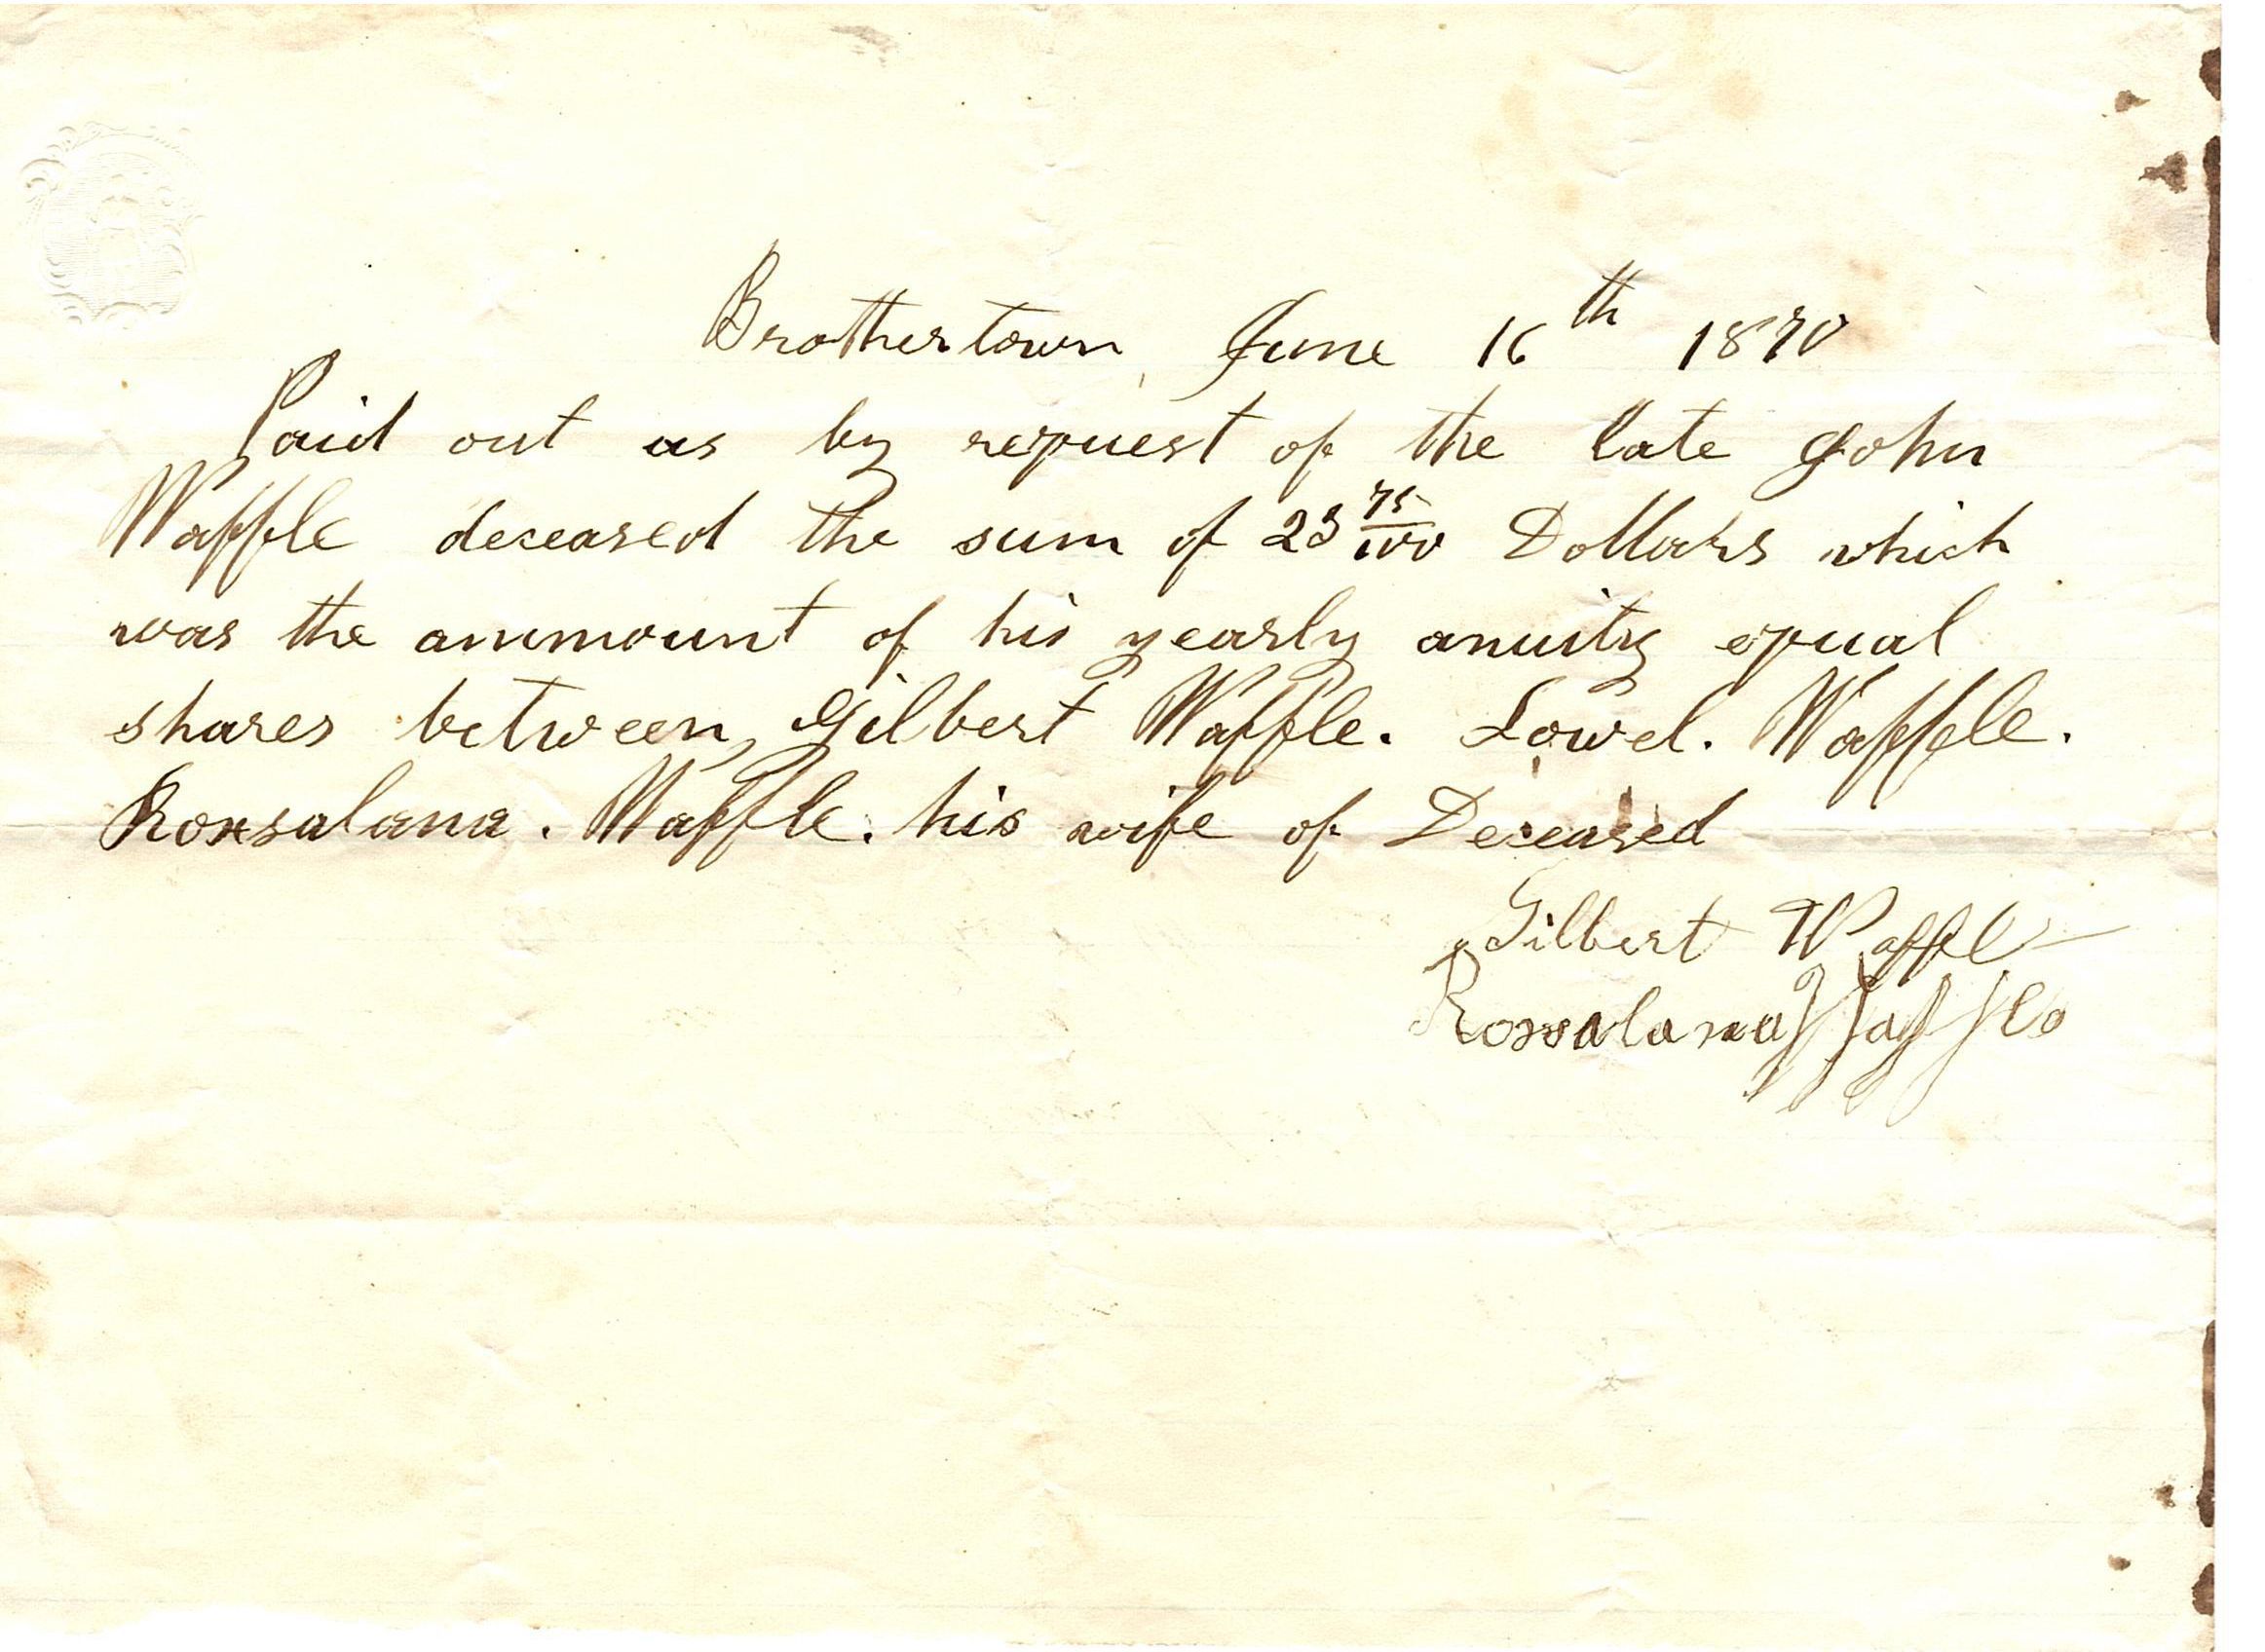 Brothertown, June 16th 1870
Paid out as by request of the late John
Waffle deceased the sum of 23 75/100 Dollars which
was the ammount of his yearly anuity equal
shares between, Gilbert Waffle. Lowel. Waffle.
Roxsalana. Waffle. his wife of Deceased
Gilbert Waffle
Roxsalana Waffle